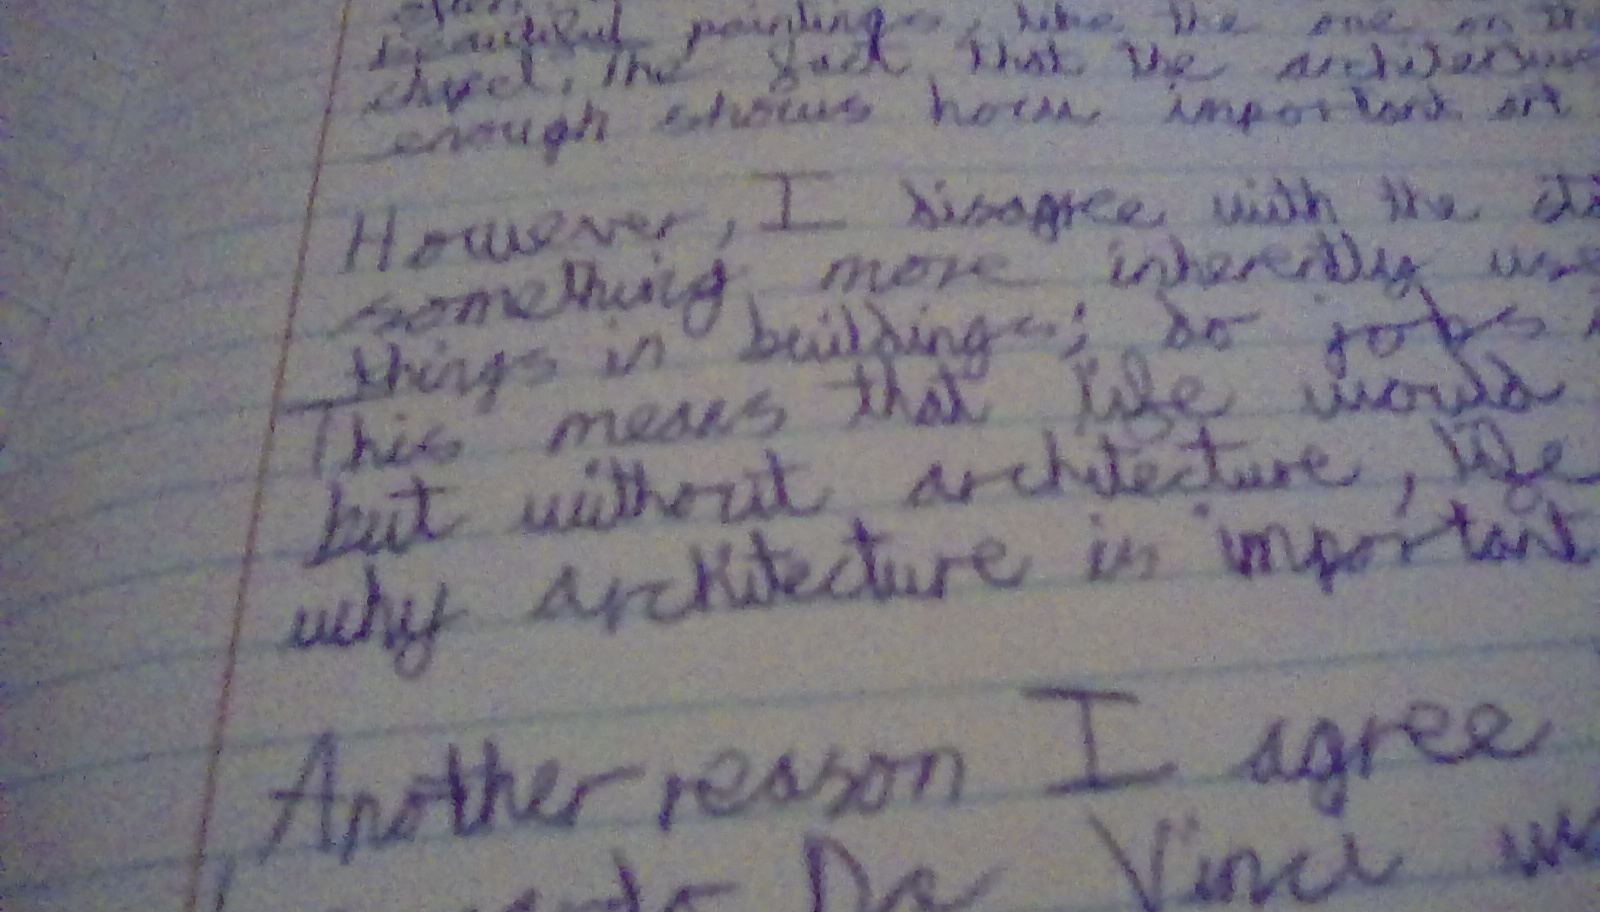 beautiful paintings, like the one on the
chapel, the fact that the architecture
enough shows how important art
However, I disagree with the
something more inherently
things in buildings; do jobs
This means that life would
but without architecture, life
why architecture is important
Another reason I agree
Da Vinci